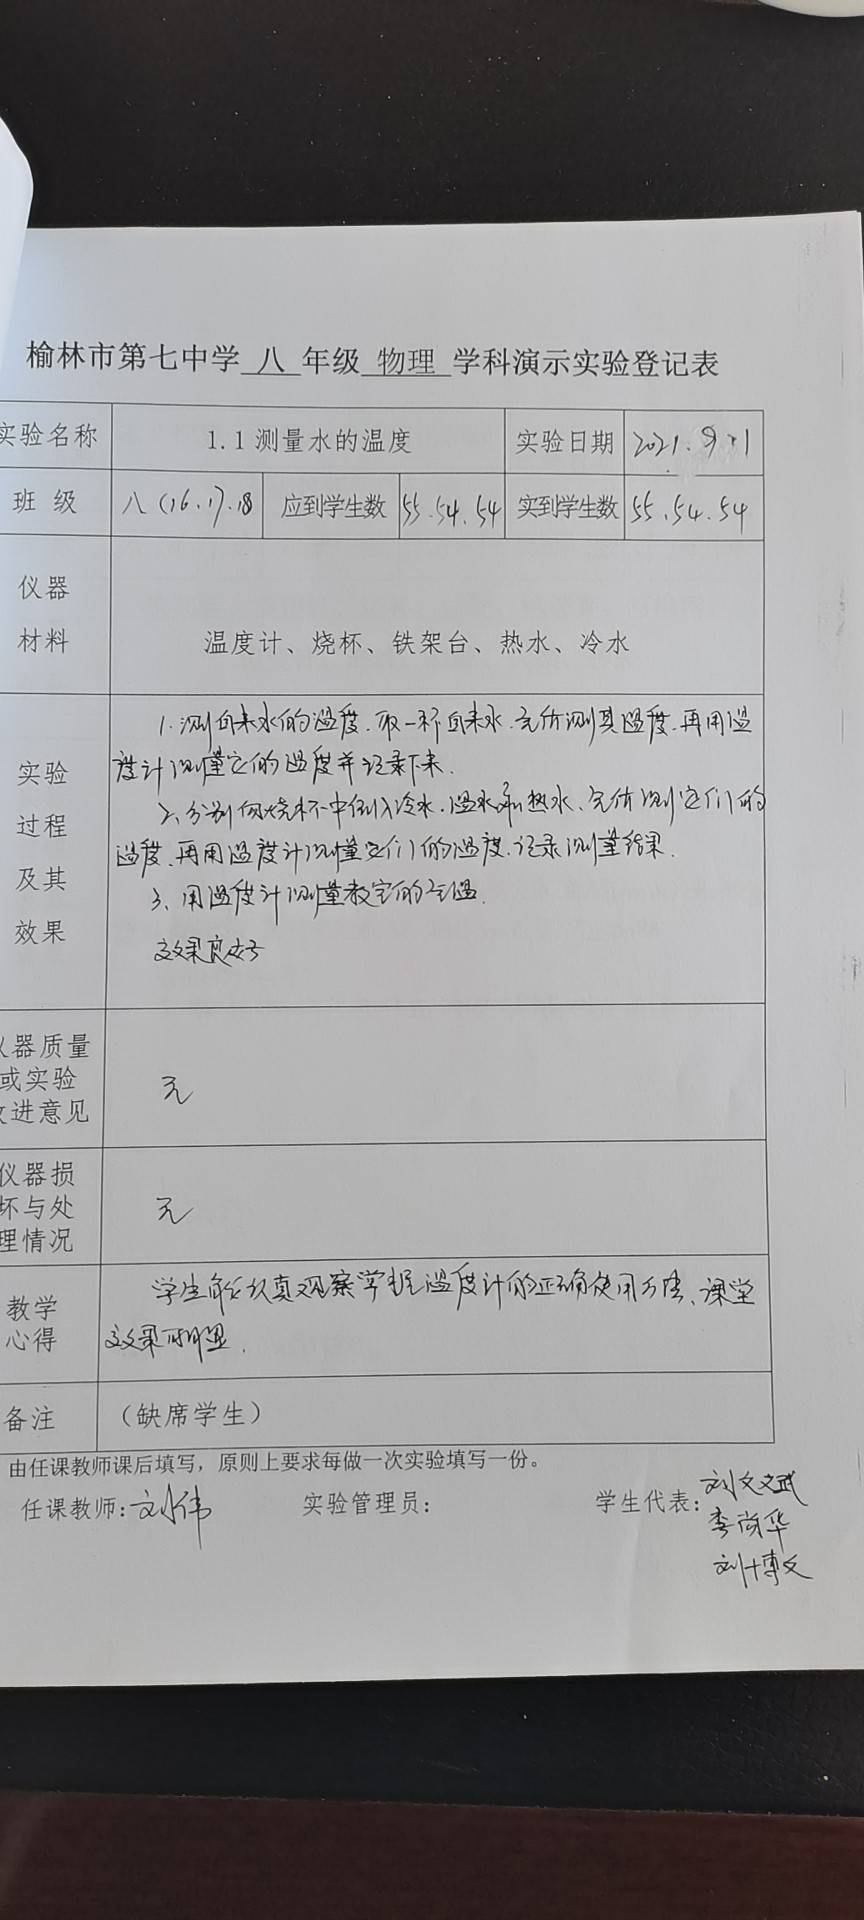 榆林市第七中学 八 年级 物理 学科演示实验登记表
实验名称 1.1 测量水的温度 实验日期 2021.9.1
班 级 八(16.17.18 应到学生数 55.54.54 实到学生数 55.54.54
仪器
材料
温度计、烧杯、铁架台、热水、冷水
实验
过程
及其
效果
1.测自来水的温度.取一杯自来水.先估测其温度.再用温
度计测量它的温度并记录下来.
2、分别向烧杯中倒入冷水.温水和热水、先估测它们的
温度.再用温度计测量它们的温度.记录测量结果.
3、用温度计测量教室的气温.
效果良好
仪器质量
或实验
改进意见
无
仪器损
坏与处
理情况
无
教学
心得
学生能认真观察掌握温度计的正确使用方法、课堂
效果明显.
备注 (缺席学生)
由任课教师课后填写，原则上要求每做一次实验填写一份。
任课教师:刘伟 实验管理员: 学生代表:刘文武
李尚华
刘博文